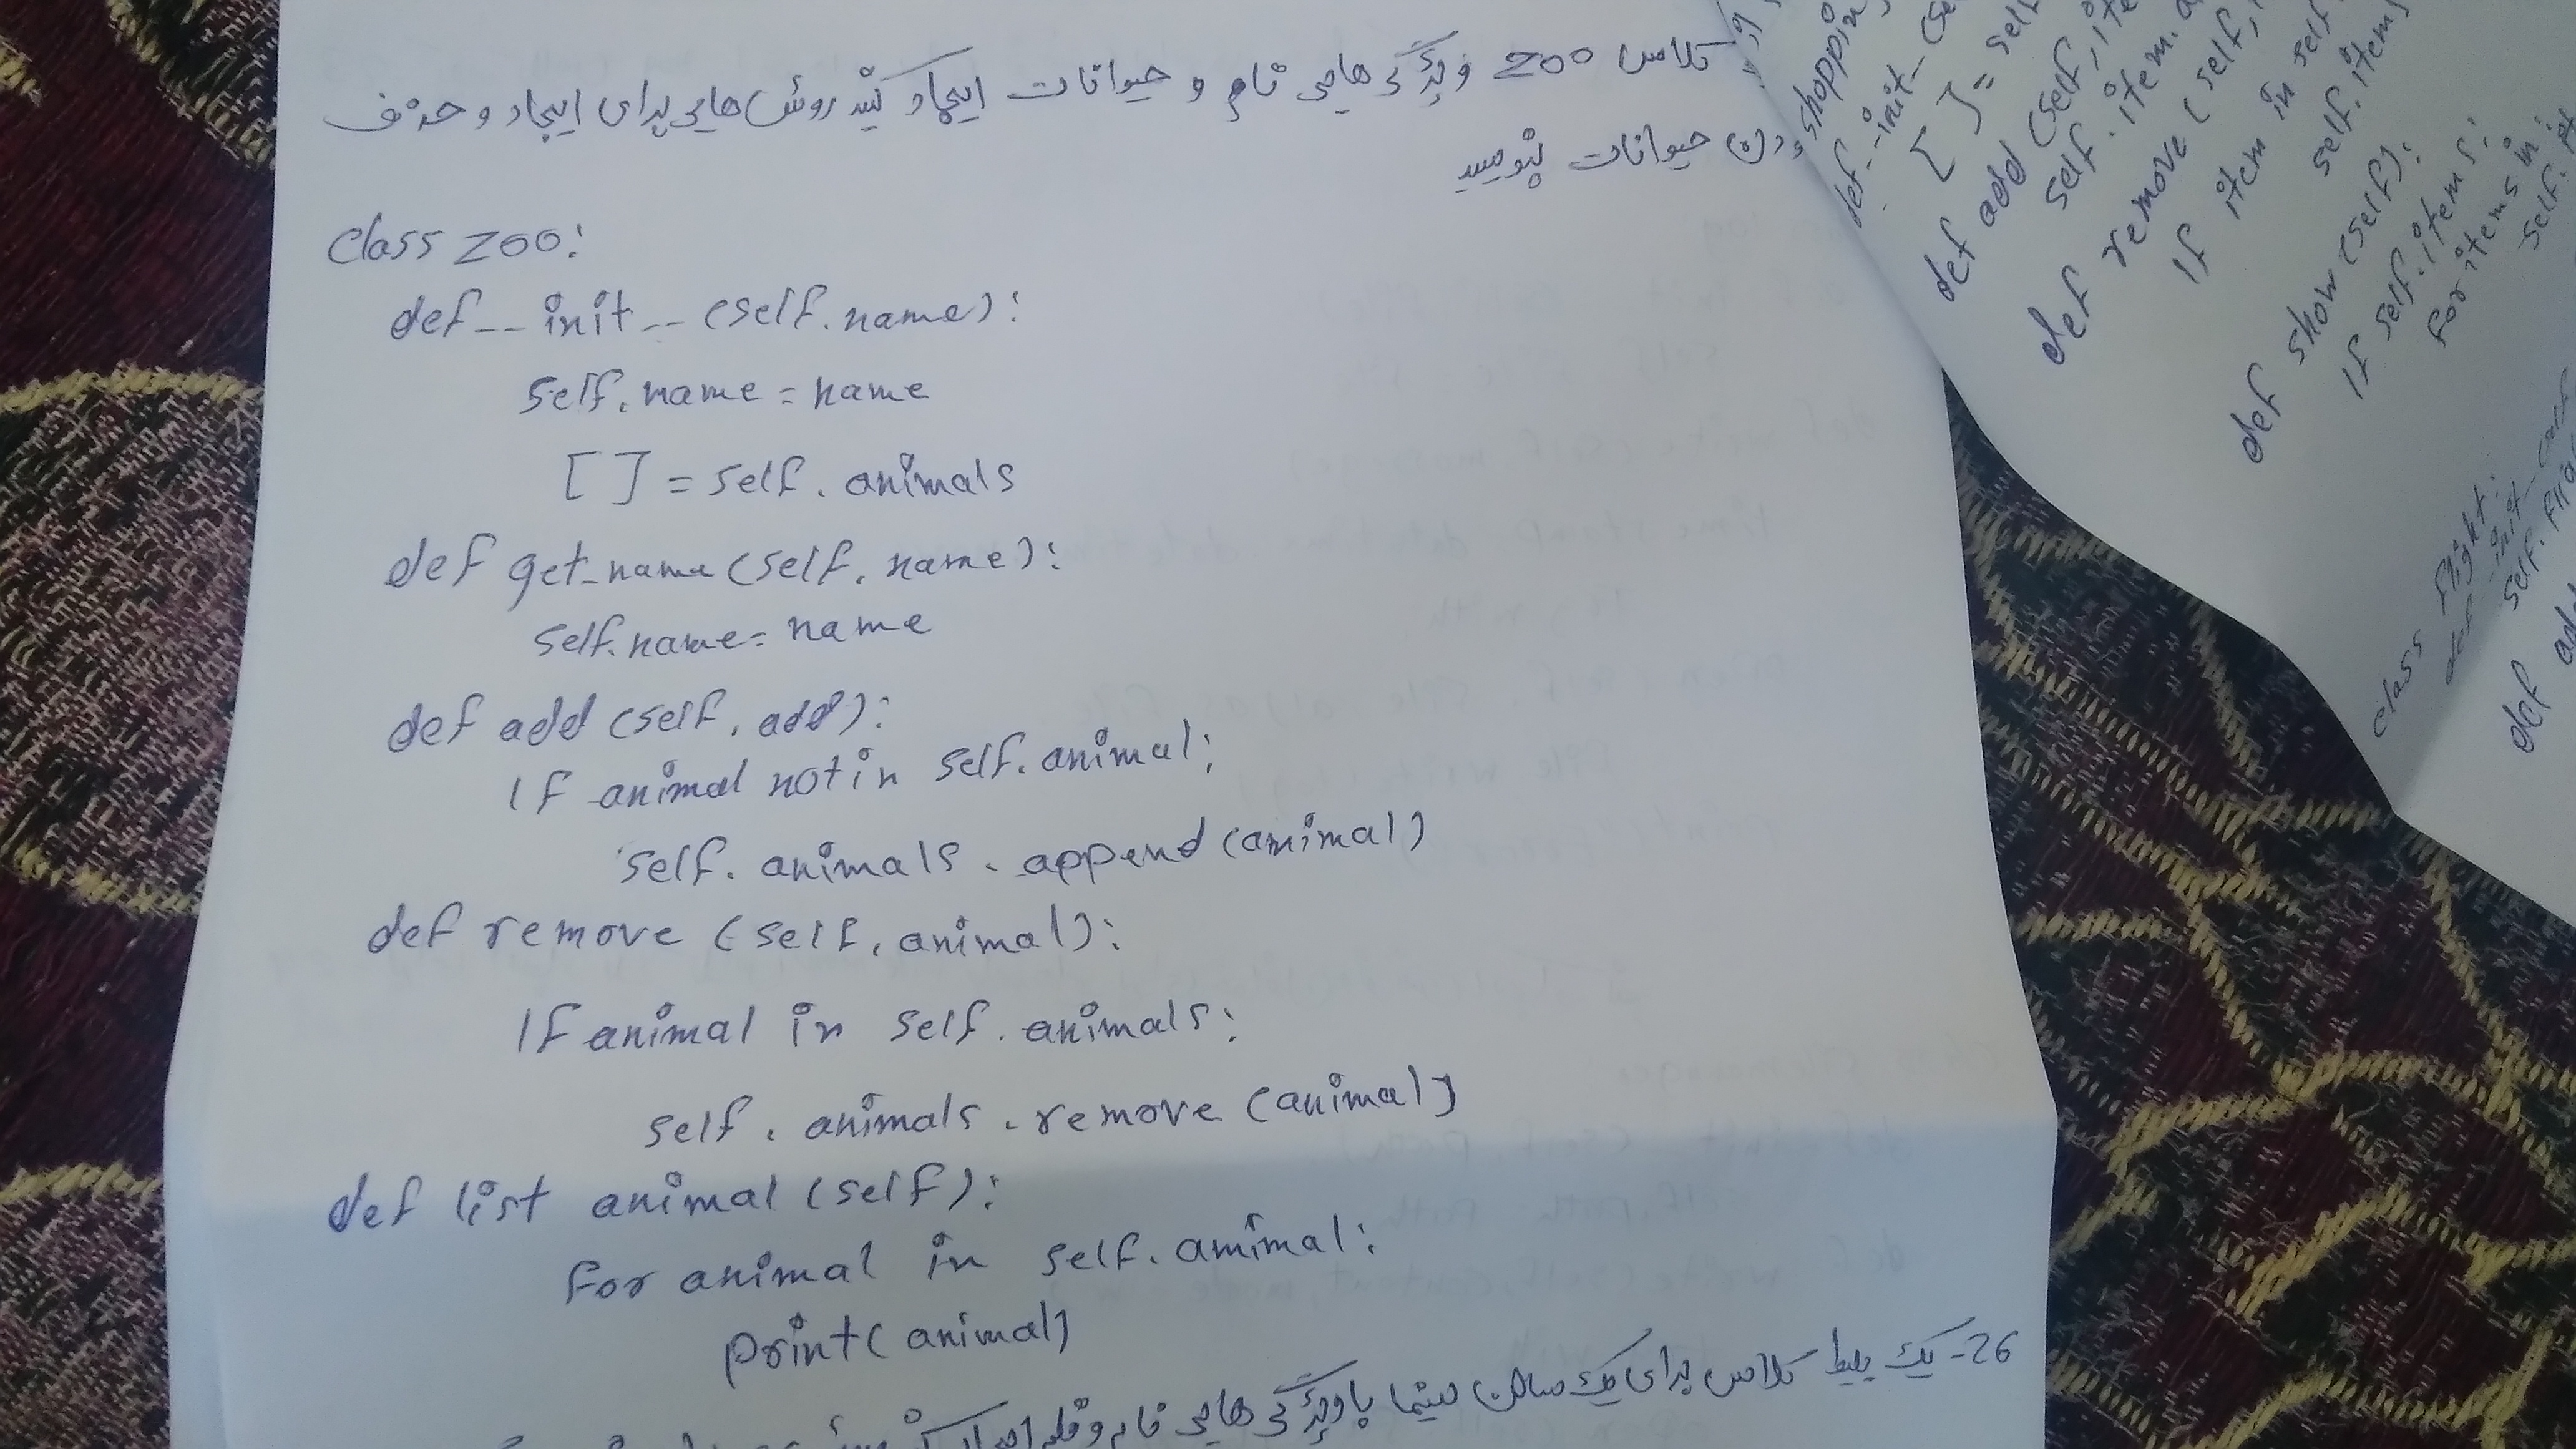 کلاس zoo ویژگی های نام و حیوانات ایجاد کنید روش هایی برای ایجاد و حذف
حیوانات بنویسید
class zoo:
def __init__ (self.name):
self.name = name
[ ] = self.animals
def get_name (self.name):
self.name = name
def add (self, add):
If animal not in self.animal:
self.animals.append (animal)
def remove (self, animal):
If animal in self.animals:
self.animals.remove (animal)
def list animal (self):
for animal in self.animal:
print (animal)
26- یک کلاس بلیط برای مسافرت سینما با ویژگی های نام فیلم
shopping
def __init__ (se
[ ] = self
def add (self, ite
self.item.a
def remove (self,
If item in self
self.items
def show (self):
If self.items:
for items in:
self.
class flight:
def __init__ (self
self.
def add